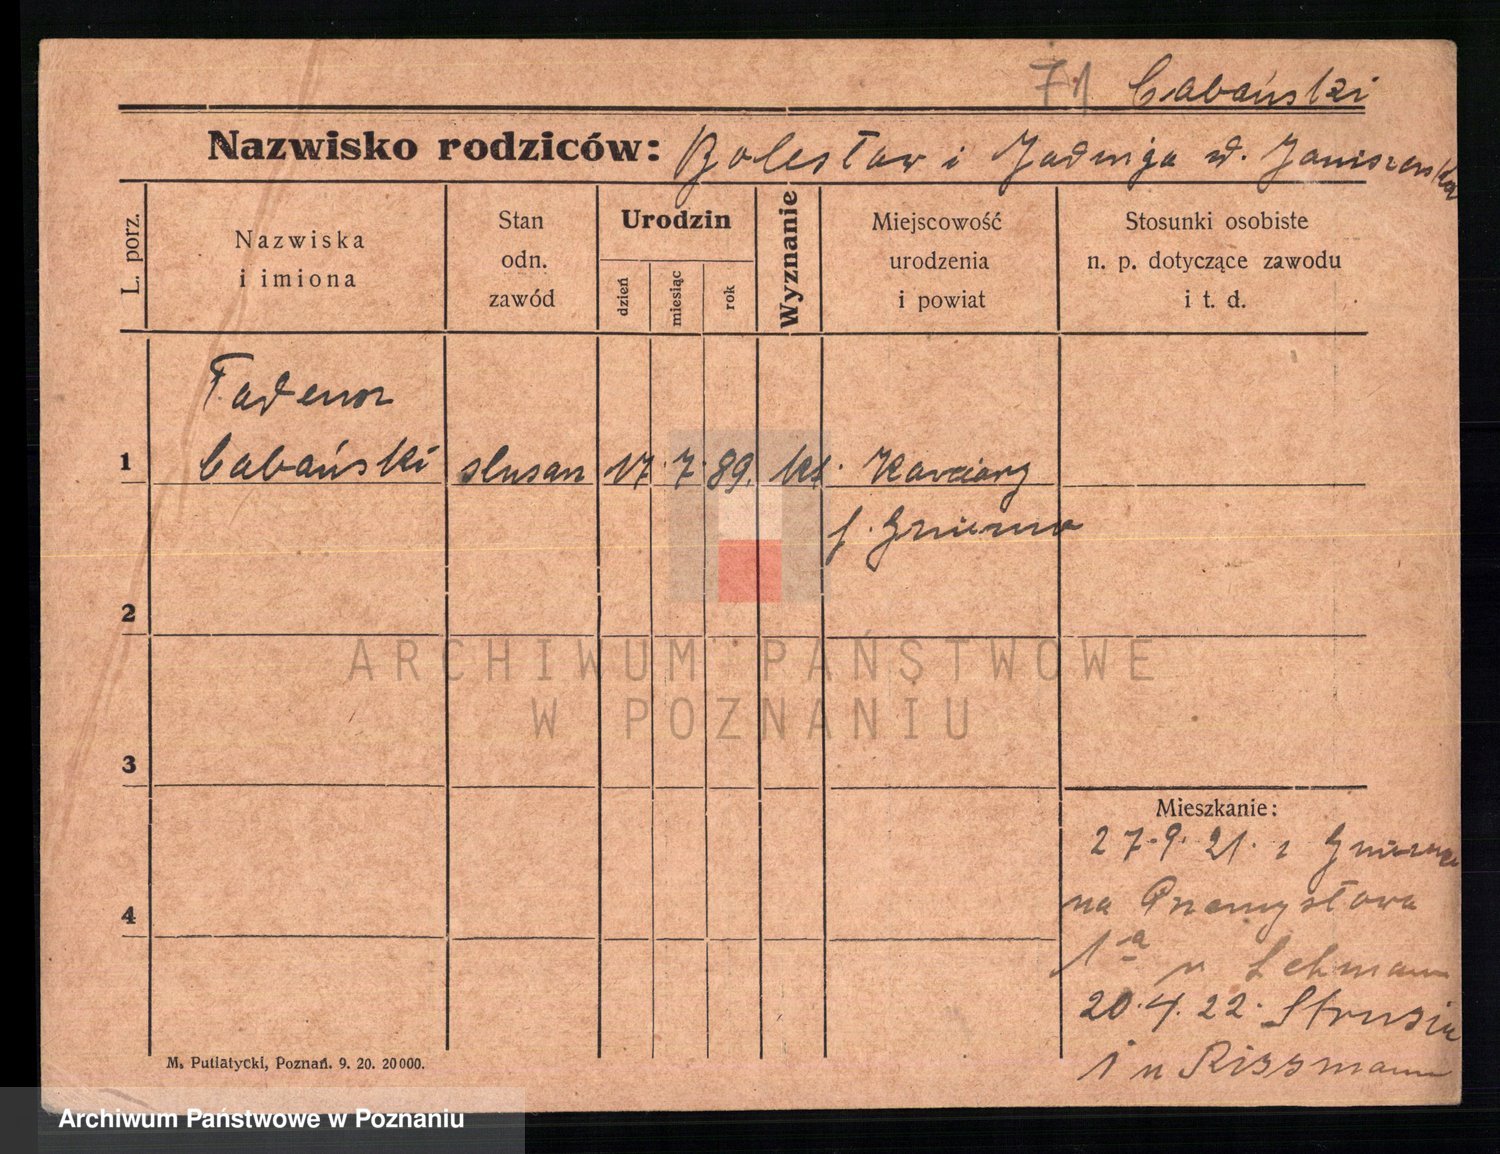 71 Cabański
Nazwisko rodziców: Bolesław i Jadwiga z d. Janiszewska
L. porz.
Nazwiska
i imiona
Stan
odn.
zawód
Urodzin
dzień
miesiąc
rok
Wyznanie
Miejscowość
urodzenia
i powiat
Stosunki osobiste
n. p. dotyczące zawodu
i t. d.
Tadeusz
1 Cabański ślusarz 17. 7. 89. kt.
2
3
4
Mieszkanie:
27.9.21. z Gniezna
na Przemysłowa
1a u Lehmann
20.4.22. Strusia
1 u Rissmann
M. Putiatycki, Poznań. 9. 20. 20000.
ARCHIWUM PAŃSTWOWE
W POZNANIU
Archiwum Państwowe w Poznaniu